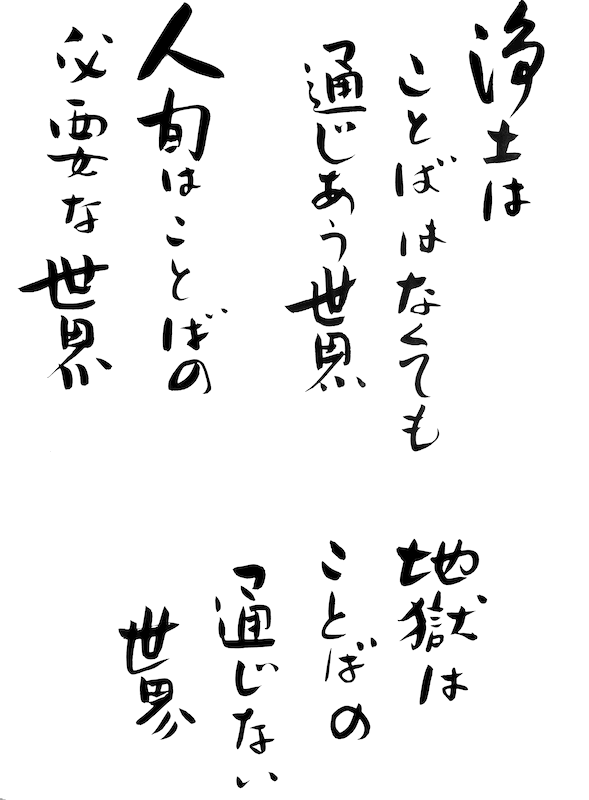 浄土は
ことばはなくても
通じあう世界
人間はことばの
必要な世界
地獄は
ことばの
通じない
世界